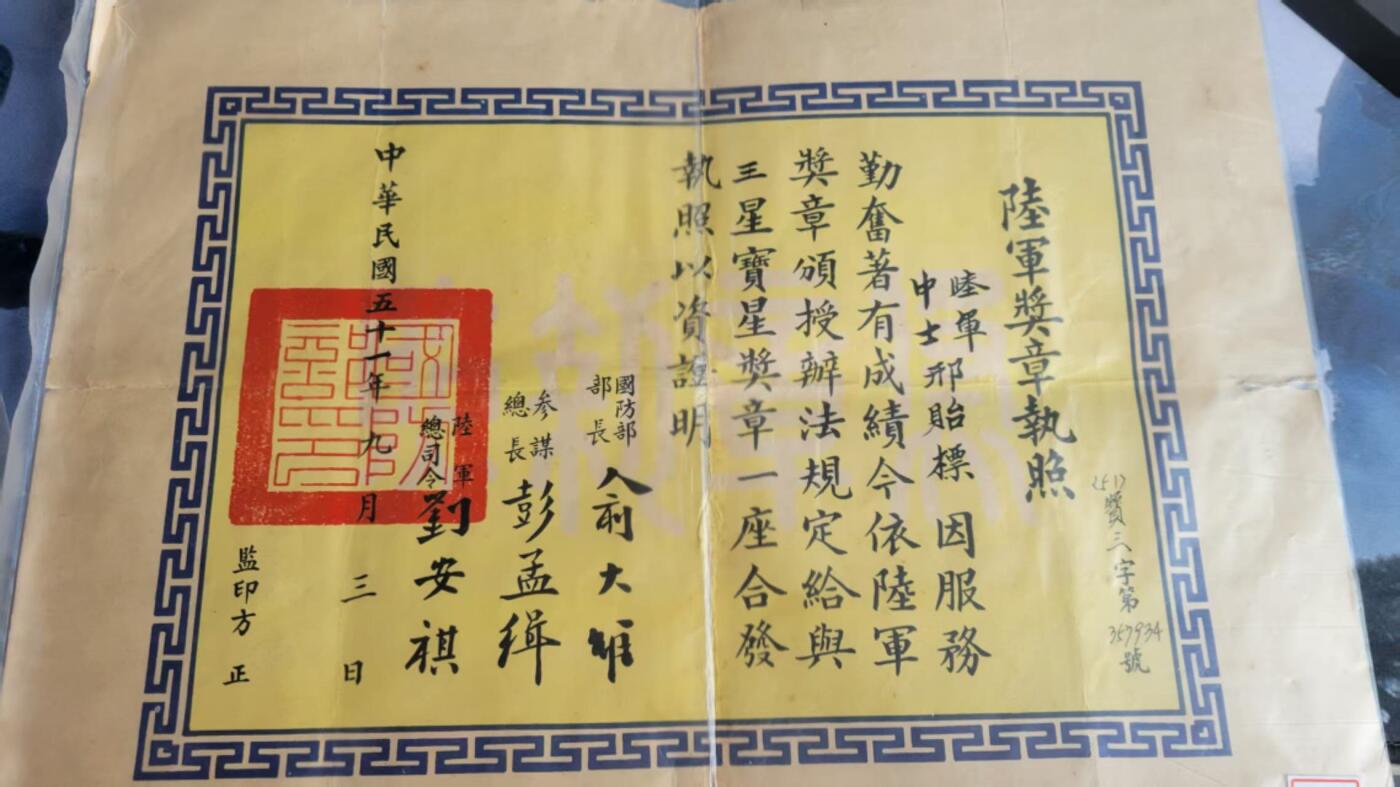 陸軍獎章執照
(51)獎三字第357934號
陸軍中士邢貽標因服務
勤奮著有成績今依陸軍
獎章頒授辦法規定給與
三星寶星獎章一座合發
執照以資證明
國防部部長俞大維
參謀總長彭孟緝
陸軍總司令劉安祺
中華民國五十一年九月三日
監印方正